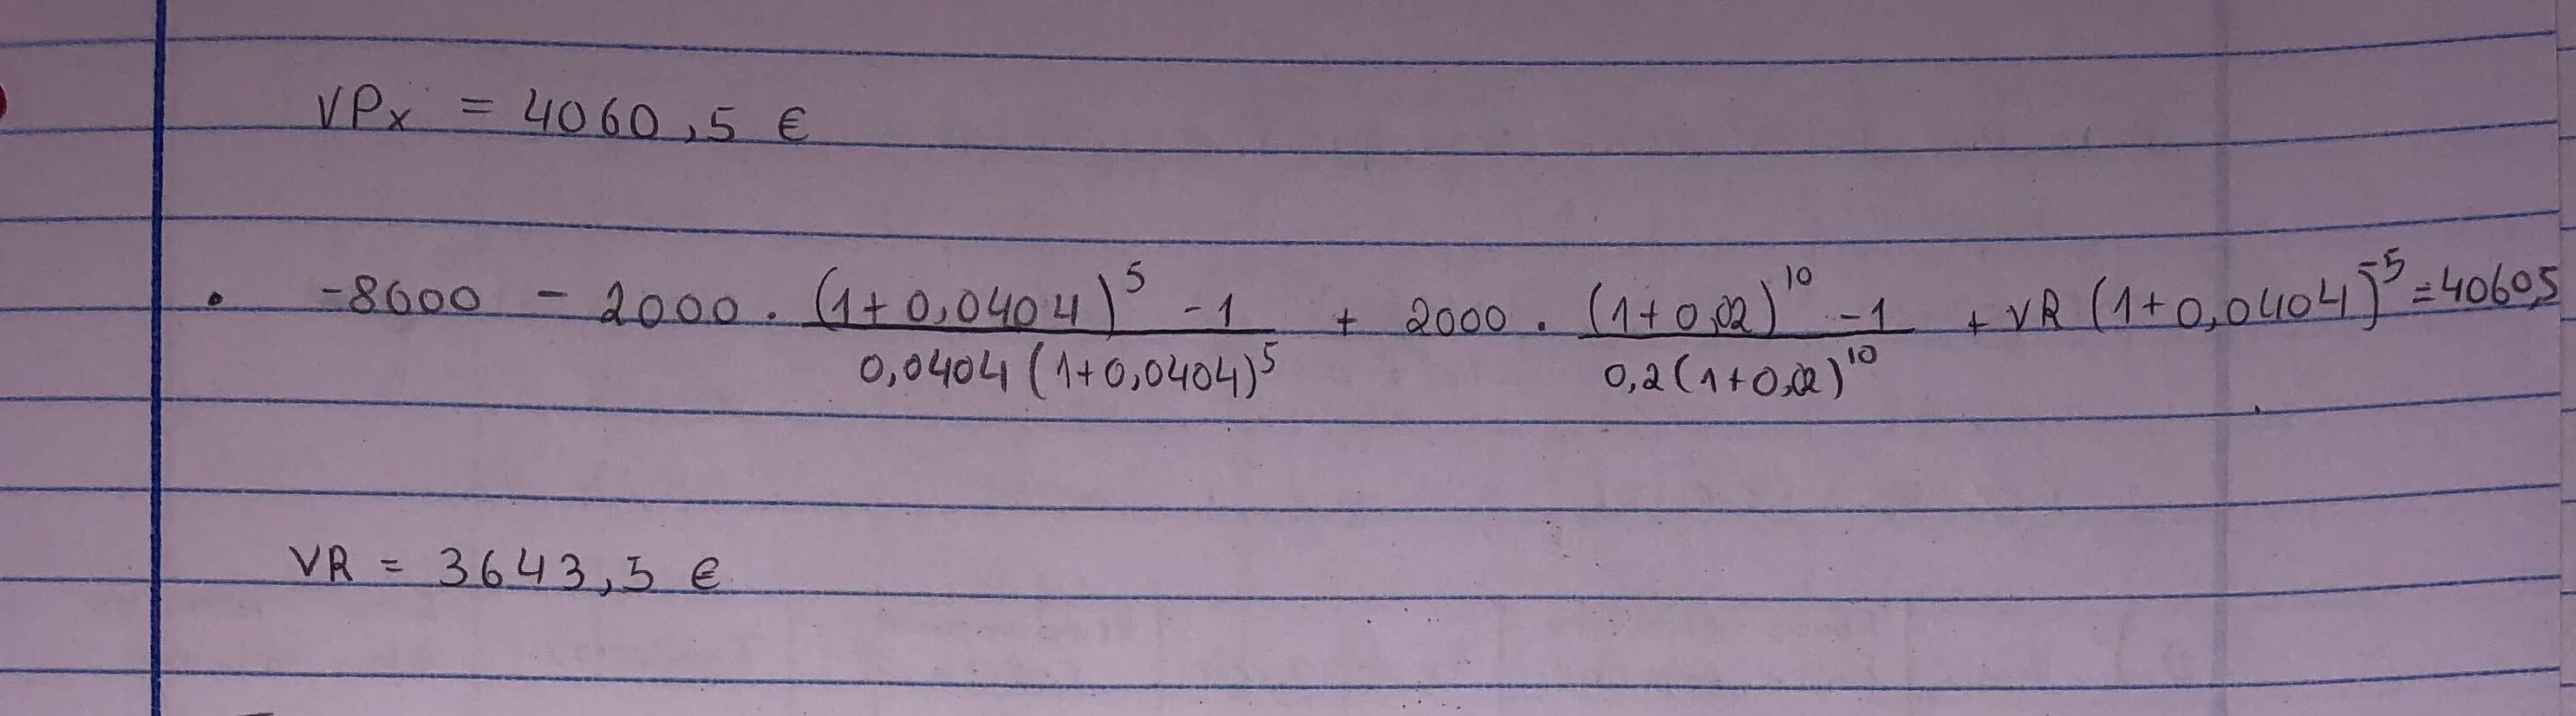 VPx = 4060,5 €
• -8000 - 2000 . (1+0,0404)^5 - 1 / 0,0404 (1+0,0404)^5 + 2000 . (1+0,02)^10 - 1 / 0,2 (1+0,02)^10 + VR (1+0,0404)^-5 = 4060,5
VR = 3643,5 €